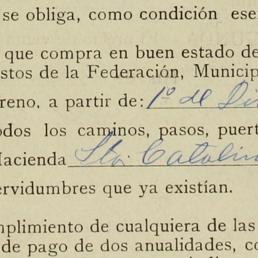 se obliga, como condición ese
que compra en buen estado de
stos de la Federación, Municip
reno, a partir de: 1º de Di
odos los caminos, pasos, puert
Hacienda Sta. Catalin
ervidumbres que ya existían.
mplimiento de cualquiera de las
de pago de dos anualidades, co